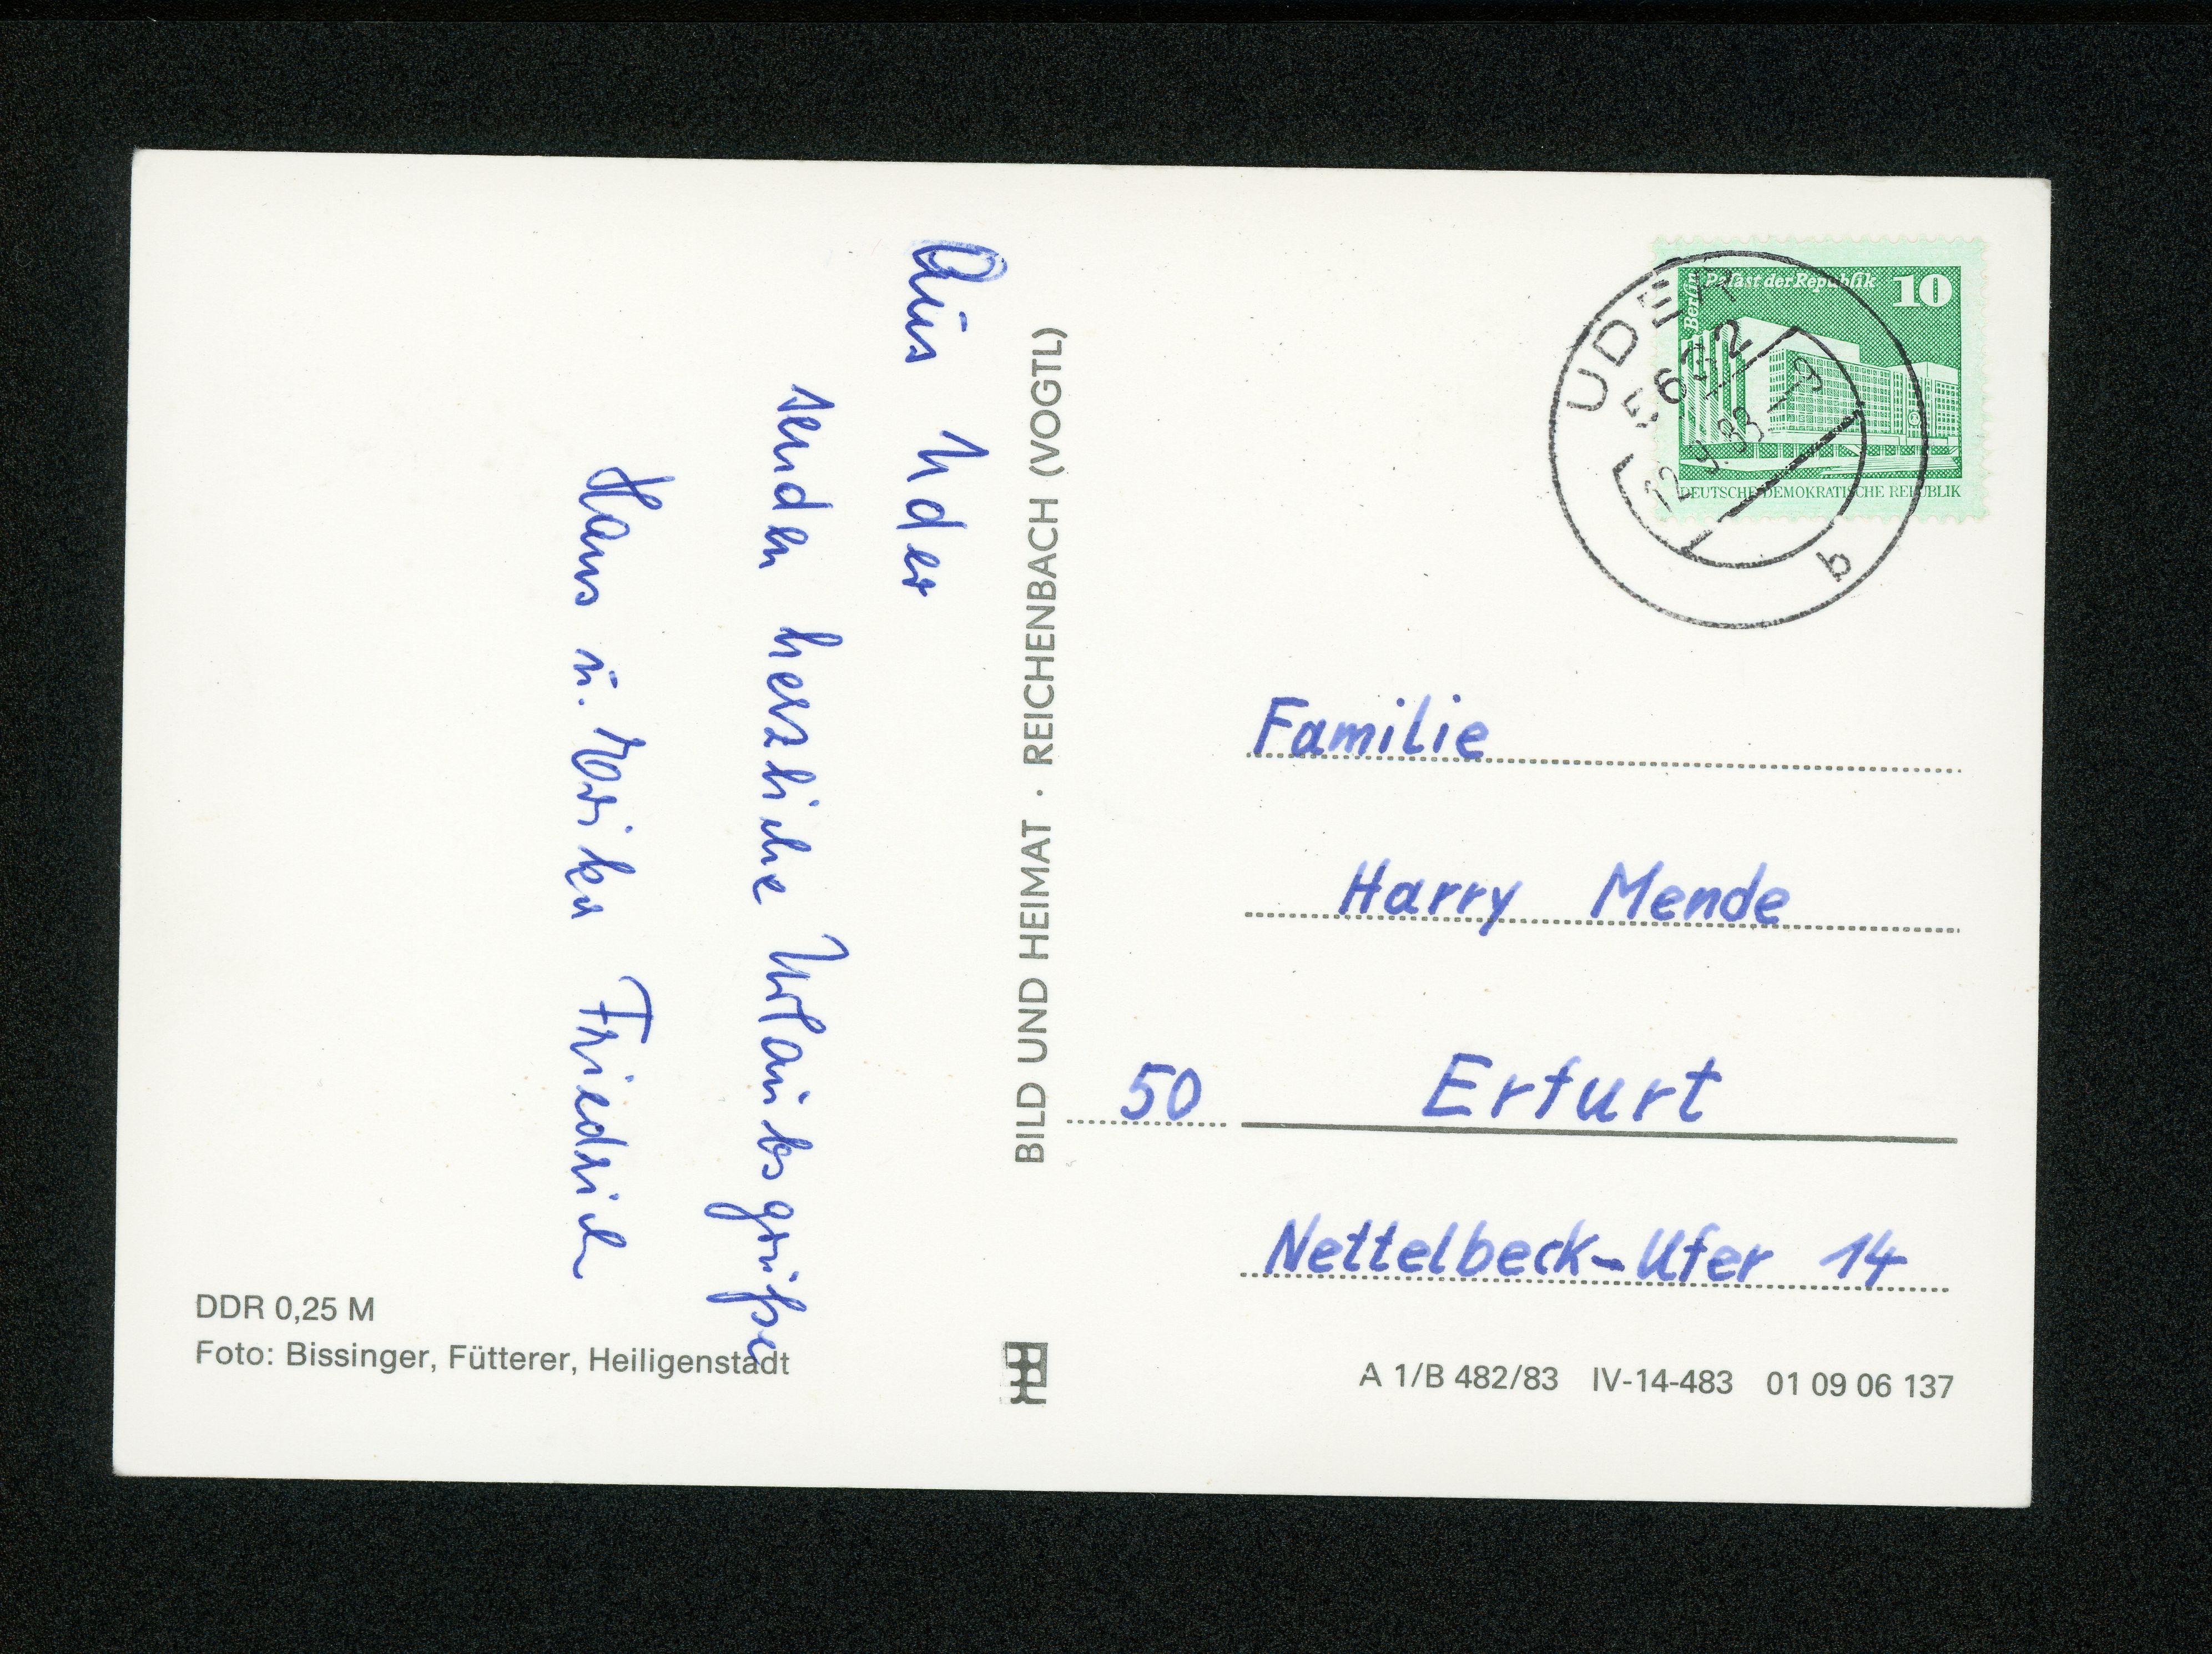 Aus Uder
senden herzliche Urlaubsgrüße
Hans u. Marika Friedrich
DDR 0,25 M
Foto: Bissinger, Fütterer, Heiligenstadt
BILD UND HEIMAT · REICHENBACH (VOGTL)
Berlin Palast der Republik 10
DEUTSCHE DEMOKRATISCHE REPUBLIK
UDER
5632
12.9.83 - 9
b
Familie
Harry Mende
50 Erfurt
Nettelbeck-Ufer 14
A 1/B 482/83 IV-14-483 01 09 06 137